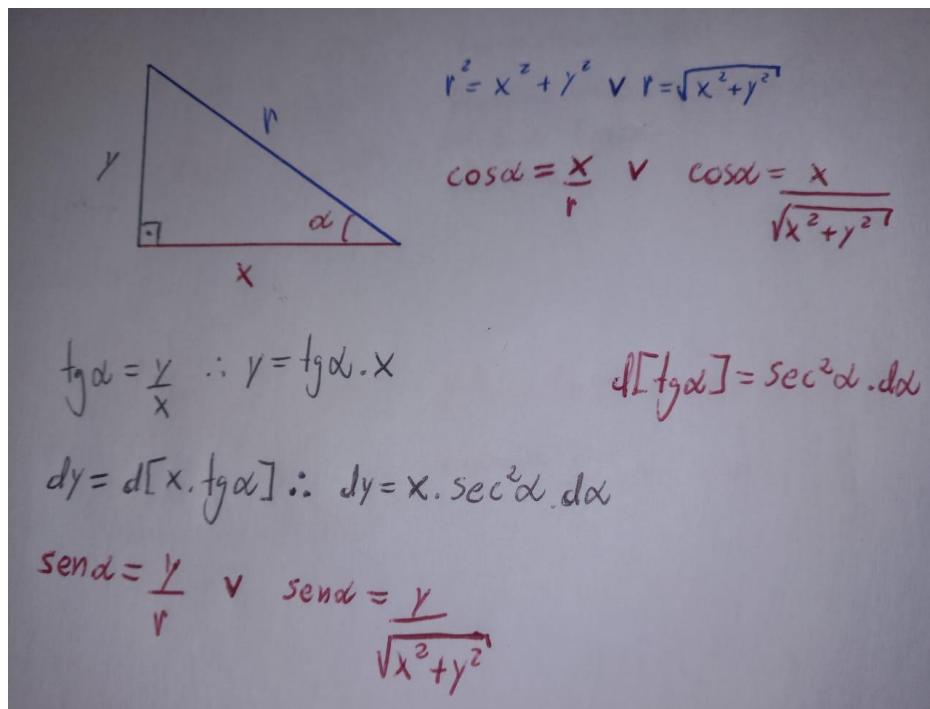 r² = x² + y² ∨ r = √(x² + y²)
r
y
cosα = x/r ∨ cosα = x/√(x² + y²)
α
x
tgα = y/x ∴ y = tgα . x
d[tgα] = sec²α . dα
dy = d[x . tgα] ∴ dy = x . sec²α . dα
senα = y/r ∨ senα = y/√(x² + y²)